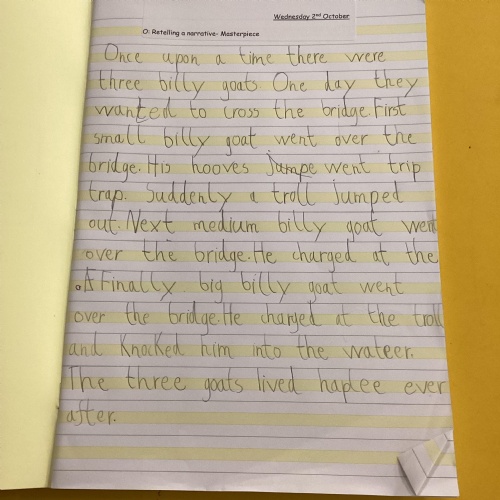 Wednesday 2nd October
O: Retelling a narrative- Masterpiece
Once upon a time there were
three billy goats. One day they
wanted to cross the bridge. First
small billy goat went over the
bridge. His hooves Jumpe went trip
trap. Suddenly a troll jumped
out. Next medium billy goat went
over the bridge. He charged at the
Finally big billy goat went
over the bridge. He charged at the troll
and knocked him into the wateer.
The three goats lived haplee ever
after.